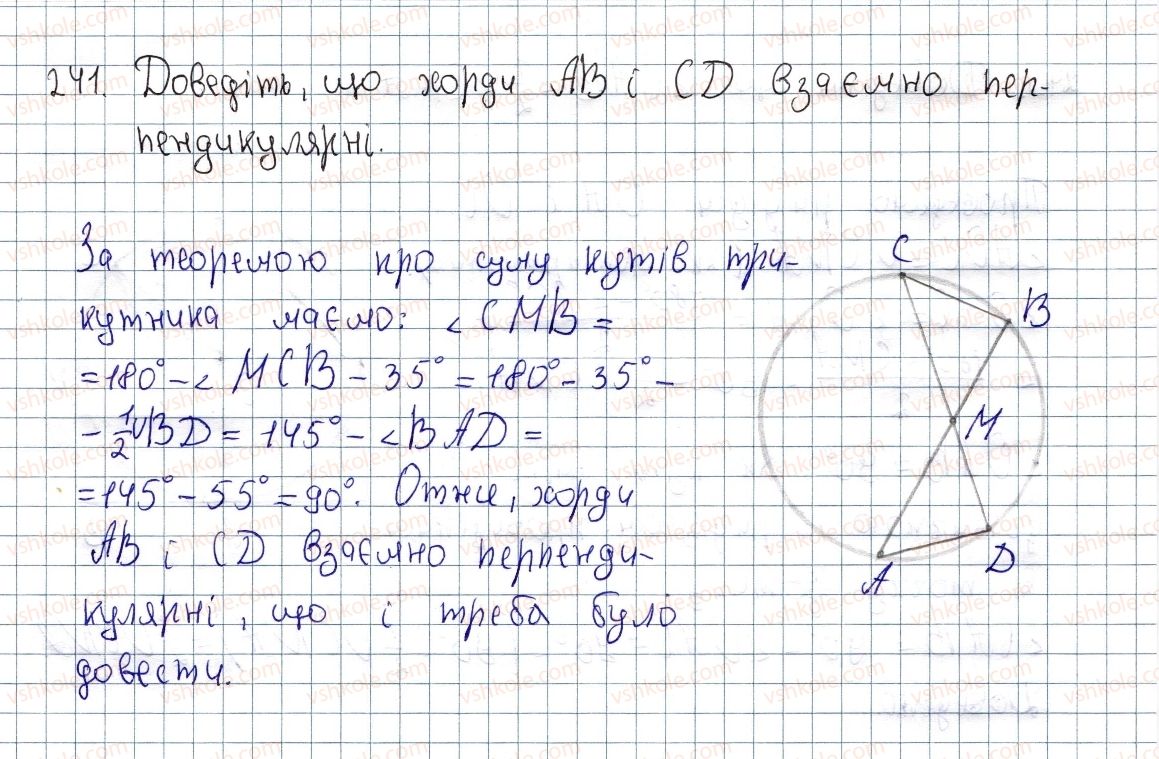 241. Доведіть, що хорди AB і CD взаємно пер-
пендикулярні.
За теоремою про суму кутів три-
кутника маємо: ∠CMB =
= 180° - ∠MCB - 35° = 180° - 35° -
- 1/2 ∪BD = 145° - ∠BAD =
= 145° - 55° = 90°. Отже, хорди
AB і CD взаємно перпенди-
кулярні, що і треба було
довести.
C
B
M
D
A
vshkole.com